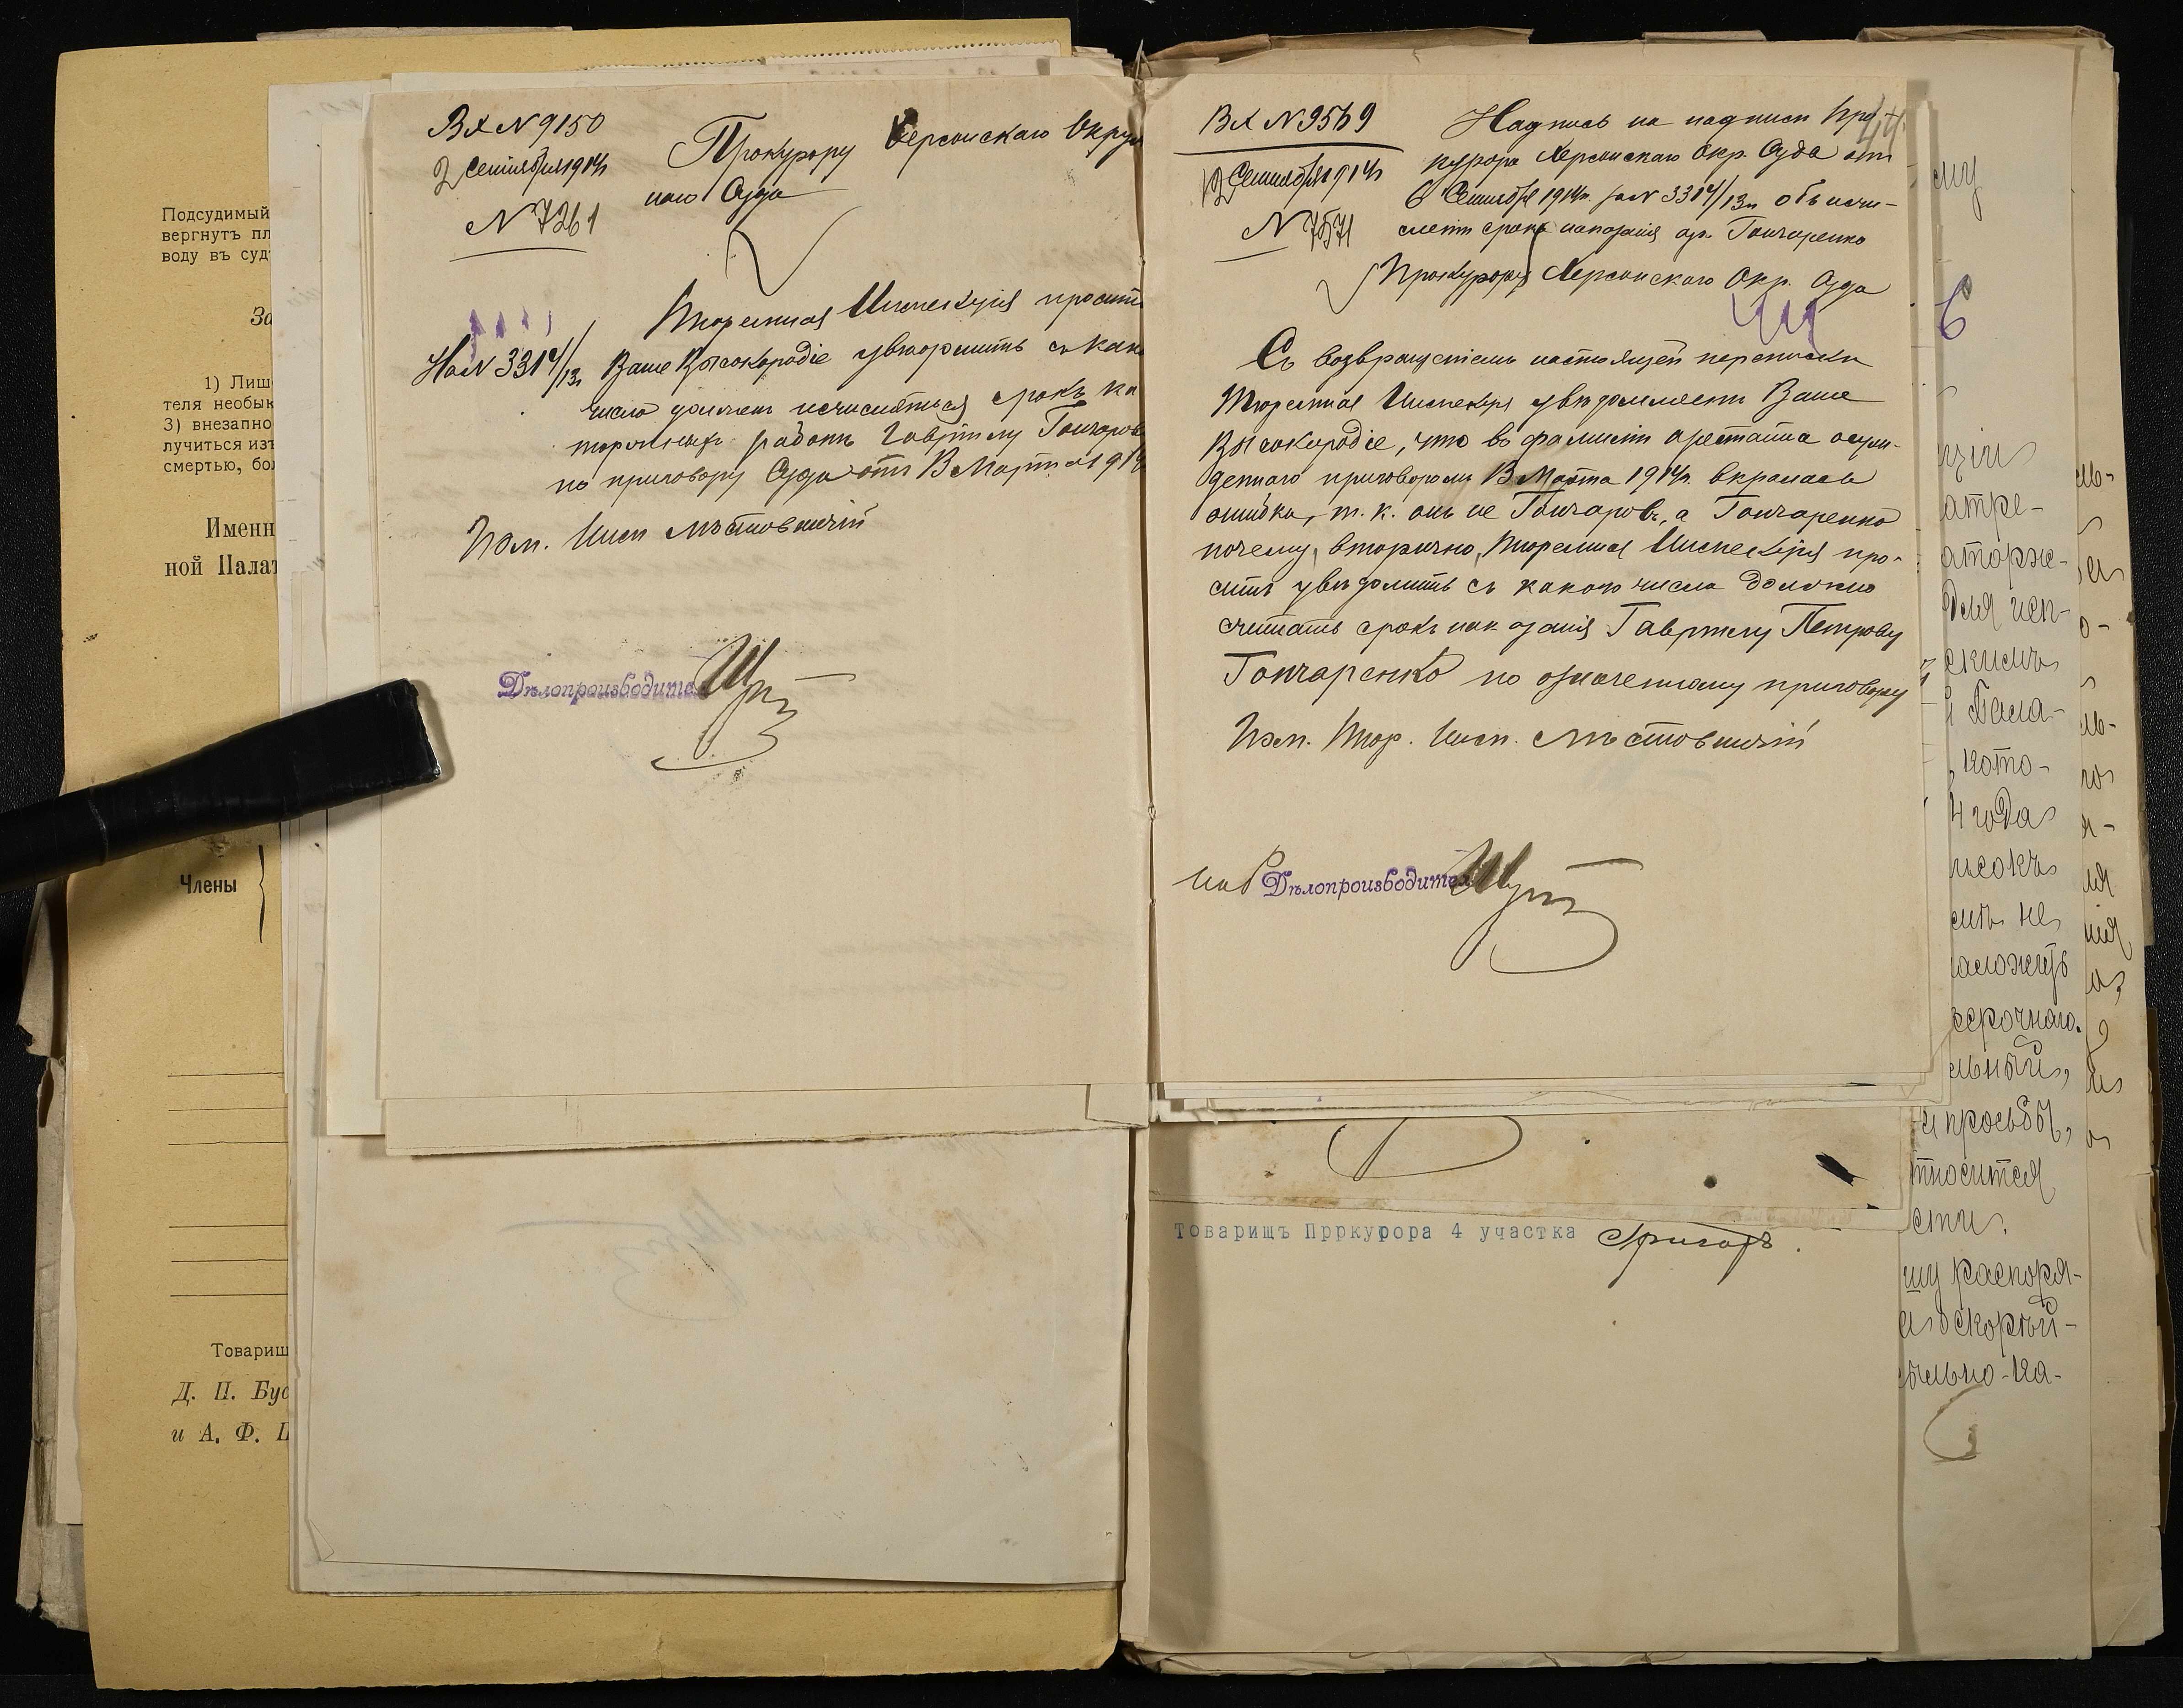 Подсудимый
вергнутъ пл
воду въ суд
За
1) Лиш
теля необык
3) внезапно
лучиться изъ
смертью, бол
Именн
ной Палат
Члены
Товарищ
Д. П. Бус
и А. Ф. Ц
Вх N 9150
2 Сентября 1914 г
N 7261
Прокурору Херсонскаго Окруж
наго Суда
На N 3314/13 г
Тюремная Инспекція проситъ
Ваше Высокородіе увѣдомить съ како
числа долженъ исчисляться срокъ ка
торжныхъ работъ Гаврілу Гончаров
по приговору Суда отъ 13 Марта 1914
Пом. Инсп Мѣстовскій
Дѣлопроизводитель
Вх N 9569
12 Сентября 1914 г
N 7571
Надпись на надписи Про-
курора Херсонскаго Окр. Суда отъ
6 Сентября 1914 г. за N 3314/13 г. объ исчи-
сленіи срока наказанія ар. Гончаренко
Прокурору Херсонскаго Окр. Суда
Съ возвращеніемъ настоящей переписки
Тюремная Инспекція увѣдомляетъ Ваше
Высокородіе, что въ фамиліи арестанта осуж-
деннаго приговоромъ 13 Марта 1914 г. вкралась
ошибка, т. к. онъ не Гончаровъ, а Гончаренко
почему, вторично, Тюремная Инспекція про-
ситъ увѣдомить съ какого числа должно
считать срокъ наказанія Гаврілу Петрову
Гончаренко по означенному приговору
Пом. Тюр. Инсп. Мѣстовскій
Дѣлопроизводитель
Товарищъ Прркурора 4 участка
му
ціи
атре-
аторж-
для исп-
скимъ
Пала-
кото-
4 года
исокъ
ить не
аложитъ
срочнаго.
льный,
и просьбы,
тносится
сти.
шу распоря-
скорѣй-
тельно-на-